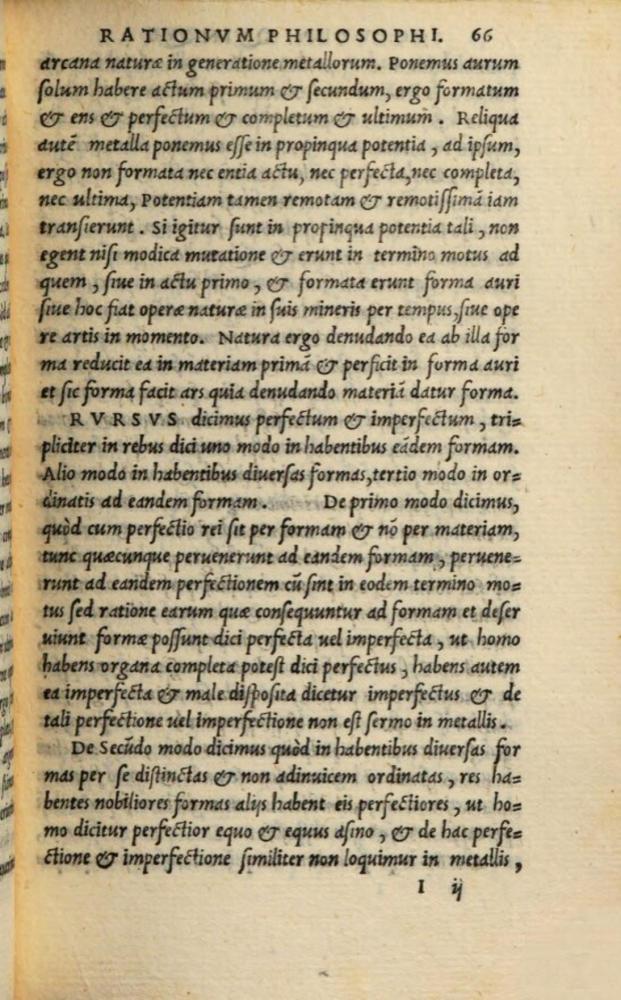 RATIONVM PHILOSOPHI. 66
arcana naturæ in generatione metallorum. Ponemus aurum
ſolum habere actum primum & ſecundum, ergo formatum
& ens & perfectum & completum & ultimum. Reliqua
autē metalla ponemus eſſe in propinqua potentia, ad ipſum,
ergo non formata nec entia actu, nec perfecta, nec completa,
nec ultima, Potentiam tamen remotam & remotiſſimā iam
tranſierunt. Si igitur ſunt in propinqua potentia tali, non
egent niſi modica mutatione & erunt in termino motus ad
quem, ſiue in actu primo, & formata erunt forma auri
ſiue hoc fiat operæ naturæ in ſuis mineris per tempus, ſiue ope
re artis in momento. Natura ergo denudando ea ab illa for
ma reducit ea in materiam primā & perficit in forma auri
et ſic forma facit ars quia denudando materiā datur forma.
RVRSVS dicimus perfectum & imperfectum, tri=
pliciter in rebus dici uno modo in habentibus eādem formam.
Alio modo in habentibus diuerſas formas, tertio modo in or=
dinatis ad eandem formam. De primo modo dicimus,
quòd cum perfectio rei ſit per formam & nō per materiam,
tunc quæcunque peruenerunt ad eandem formam, peruene=
runt ad eandem perfectionem cū ſint in eodem termino mo=
tus ſed ratione earum quæ conſequuntur ad formam et deſer
uiunt formæ poſſunt dici perfecta uel imperfecta, ut homo
habens organa completa poteſt dici perfectus, habens autem
ea imperfecta & male diſpoſita dicetur imperfectus & de
tali perfectione uel imperfectione non eſt ſermo in metallis.
De Secūdo modo dicimus quòd in habentibus diuerſas for
mas per ſe diſtinctas & non adinuicem ordinatas, res ha=
bentes nobiliores formas alijs habent eis perfectiores, ut ho=
mo dicitur perfectior equo & equus aſino, & de hac perfe=
ctione & imperfectione ſimiliter non loquimur in metallis,
I ij